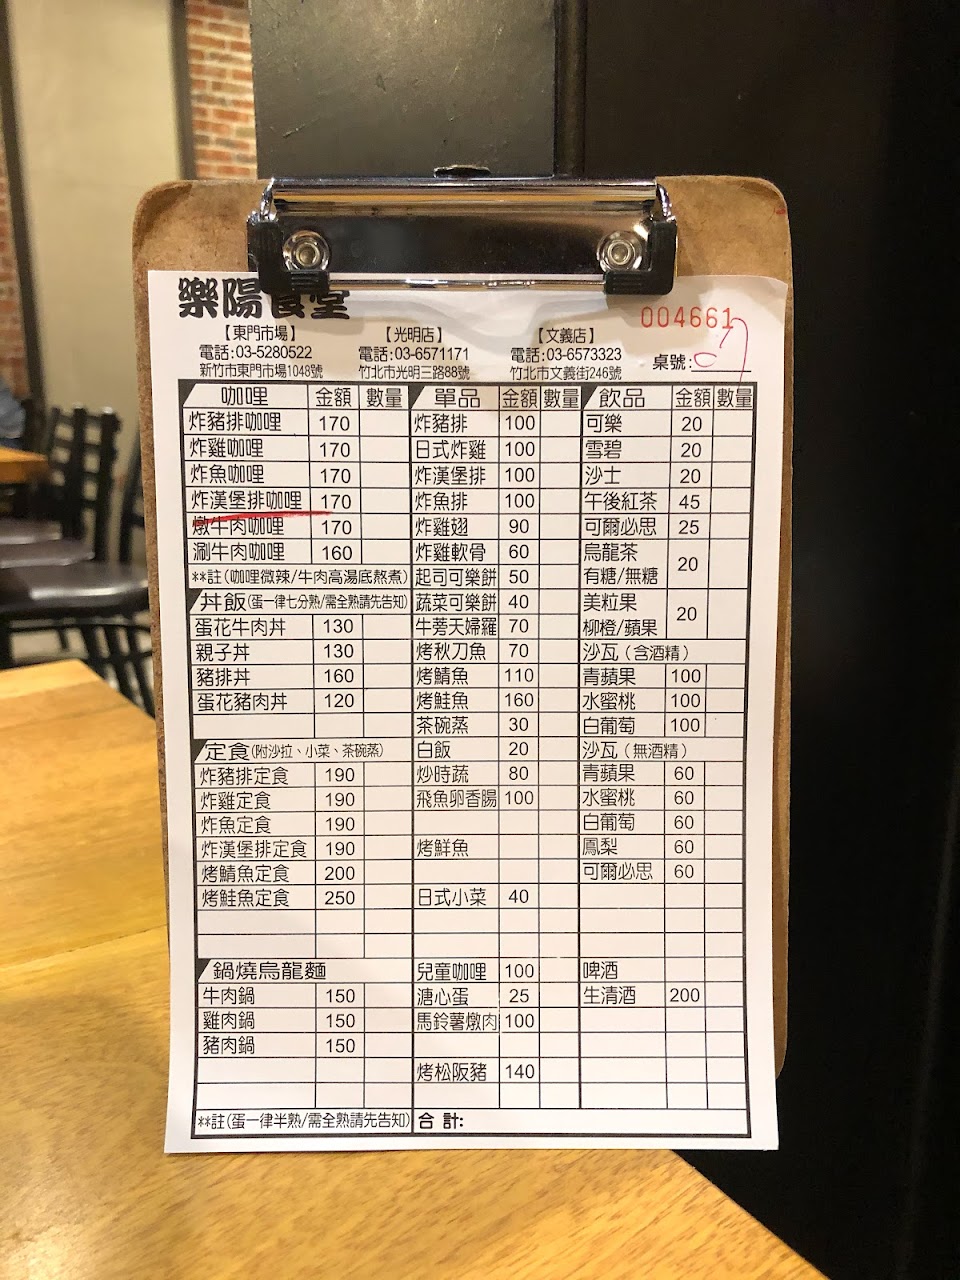 樂陽食堂
004661
【東門市場】 【光明店】 【文義店】
電話:03-5280522 電話:03-6571171 電話:03-6573323
新竹市東門市場1048號 竹北市光明三路88號 竹北市文義街246號
桌號:
咖哩 金額 數量
炸豬排咖哩 170
炸雞咖哩 170
炸魚咖哩 170
炸漢堡排咖哩 170
燉牛肉咖哩 170
涮牛肉咖哩 160
**註(咖哩微辣/牛肉高湯底熬煮)
丼飯(蛋一律七分熟/需全熟請先告知)
蛋花牛肉丼 130
親子丼 130
豬排丼 160
蛋花豬肉丼 120
定食(附沙拉、小菜、茶碗蒸)
炸豬排定食 190
炸雞定食 190
炸魚定食 190
炸漢堡排定食 190
烤鯖魚定食 200
烤鮭魚定食 250
鍋燒烏龍麵
牛肉鍋 150
雞肉鍋 150
豬肉鍋 150
**註(蛋一律半熟/需全熟請先告知)
單品 金額 數量
炸豬排 100
日式炸雞 100
炸漢堡排 100
炸魚排 100
炸雞翅 90
炸雞軟骨 60
起司可樂餅 50
蔬菜可樂餅 40
牛蒡天婦羅 70
烤秋刀魚 70
烤鯖魚 110
烤鮭魚 160
茶碗蒸 30
白飯 20
炒時蔬 80
飛魚卵香腸 100
烤鮮魚
日式小菜 40
兒童咖哩 100
溏心蛋 25
馬鈴薯燉肉 100
烤松阪豬 140
合計:
飲品 金額 數量
可樂 20
雪碧 20
沙士 20
午後紅茶 45
可爾必思 25
烏龍茶
有糖/無糖 20
美粒果
柳橙/蘋果 20
沙瓦(含酒精)
青蘋果 100
水蜜桃 100
白葡萄 100
沙瓦(無酒精)
青蘋果 60
水蜜桃 60
白葡萄 60
鳳梨 60
可爾必思 60
啤酒
生清酒 200